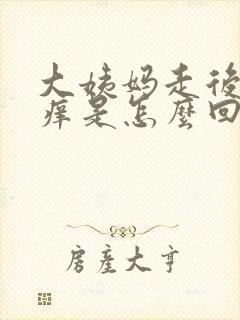 大姨妈走後
痒是怎麼回
房產大亨